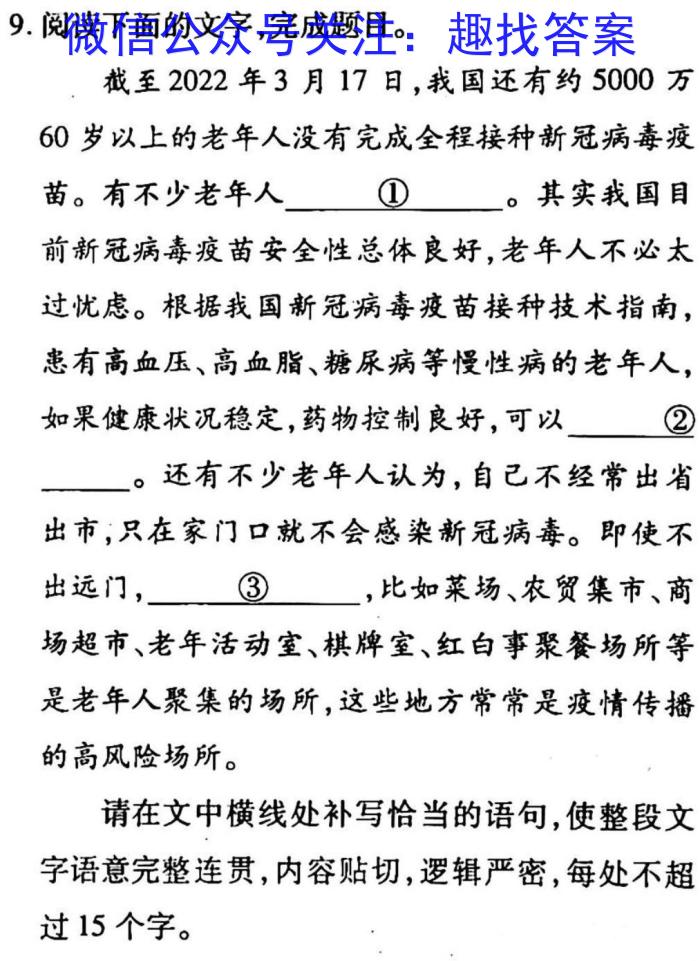 9. 阅读下面的文字,完成题目。
微信公众号关注：趣找答案
截至2022年3月17日,我国还有约5000万
60岁以上的老年人没有完成全程接种新冠病毒疫
苗。有不少老年人①。其实我国目
前新冠病毒疫苗安全性总体良好,老年人不必太
过忧虑。根据我国新冠病毒疫苗接种技术指南,
患有高血压、高血脂、糖尿病等慢性病的老年人,
如果健康状况稳定,药物控制良好,可以②
。还有不少老年人认为,自己不经常出省
出市,只在家门口就不会感染新冠病毒。即使不
出远门,③,比如菜场、农贸集市、商
场超市、老年活动室、棋牌室、红白事聚餐场所等
是老年人聚集的场所,这些地方常常是疫情传播
的高风险场所。
请在文中横线处补写恰当的语句,使整段文
字语意完整连贯,内容贴切,逻辑严密,每处不超
过15个字。